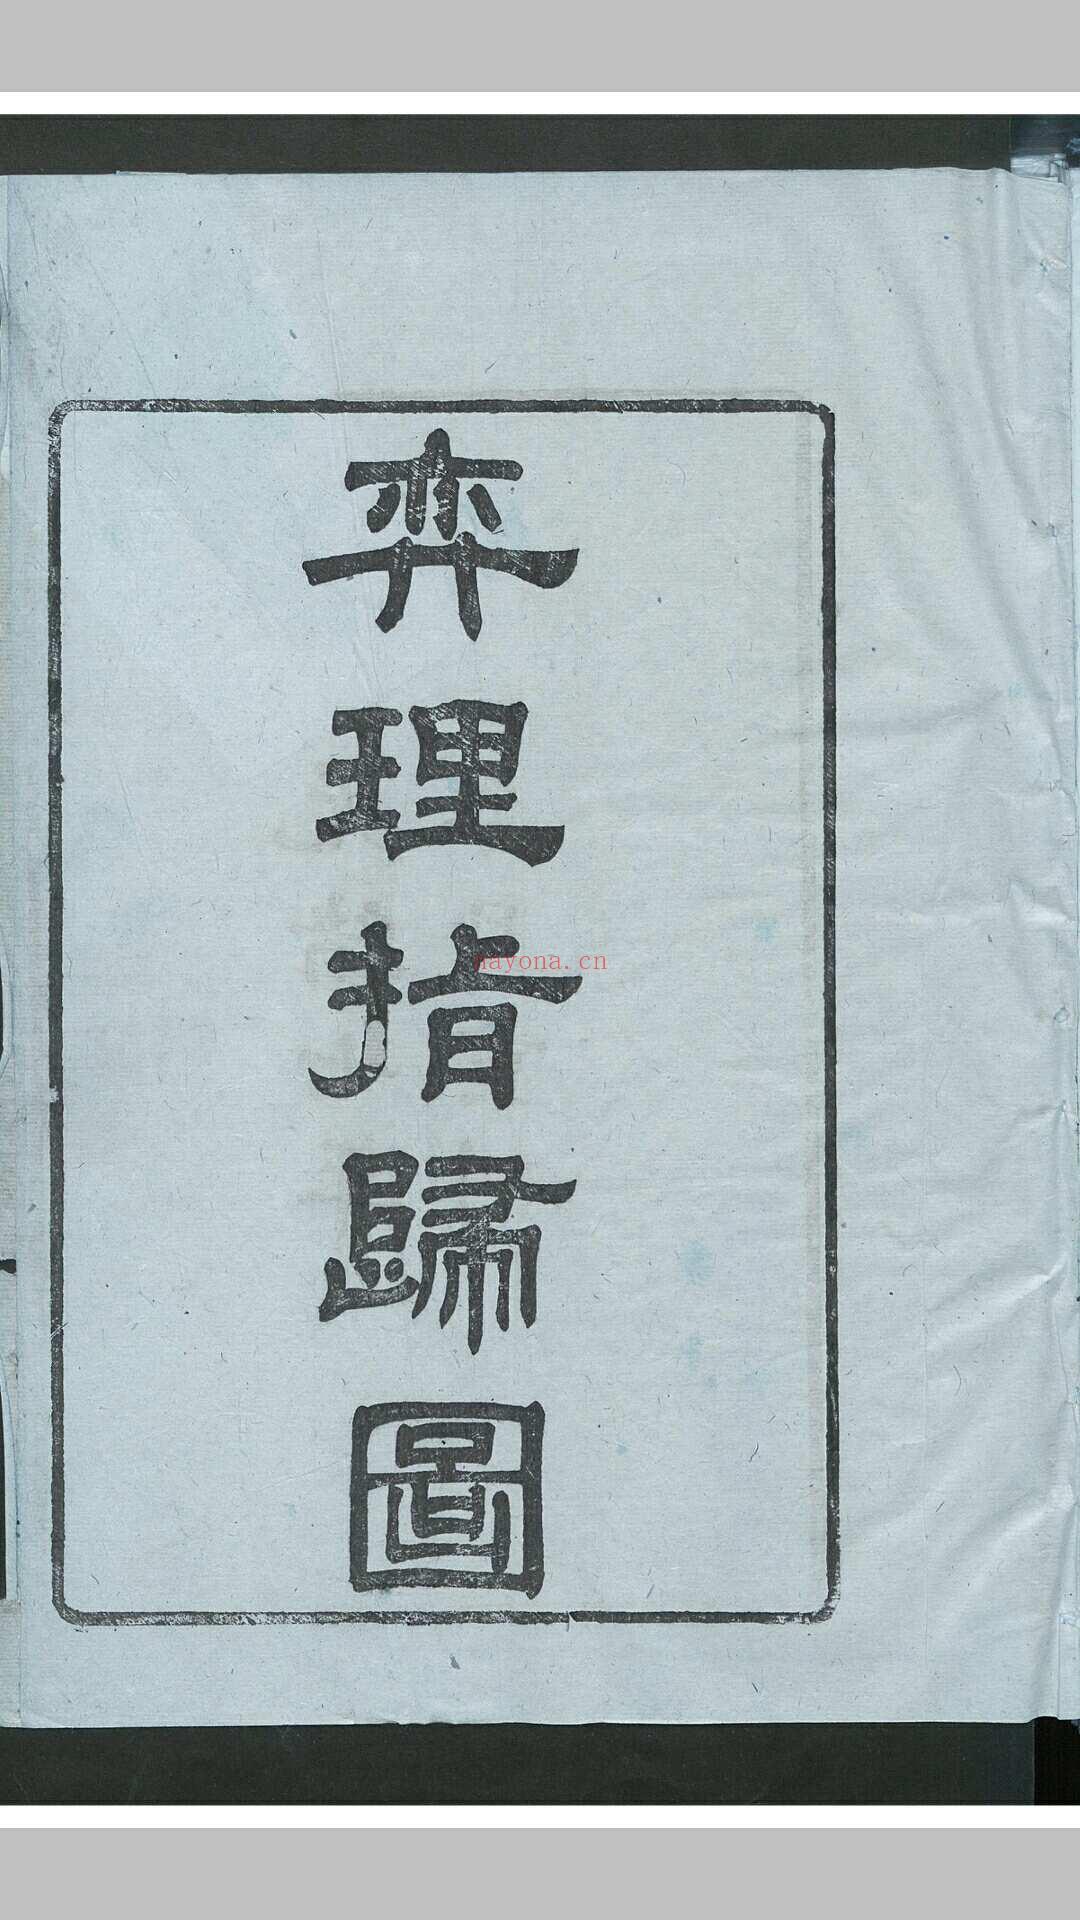 弈理指歸圖
nayona.cn